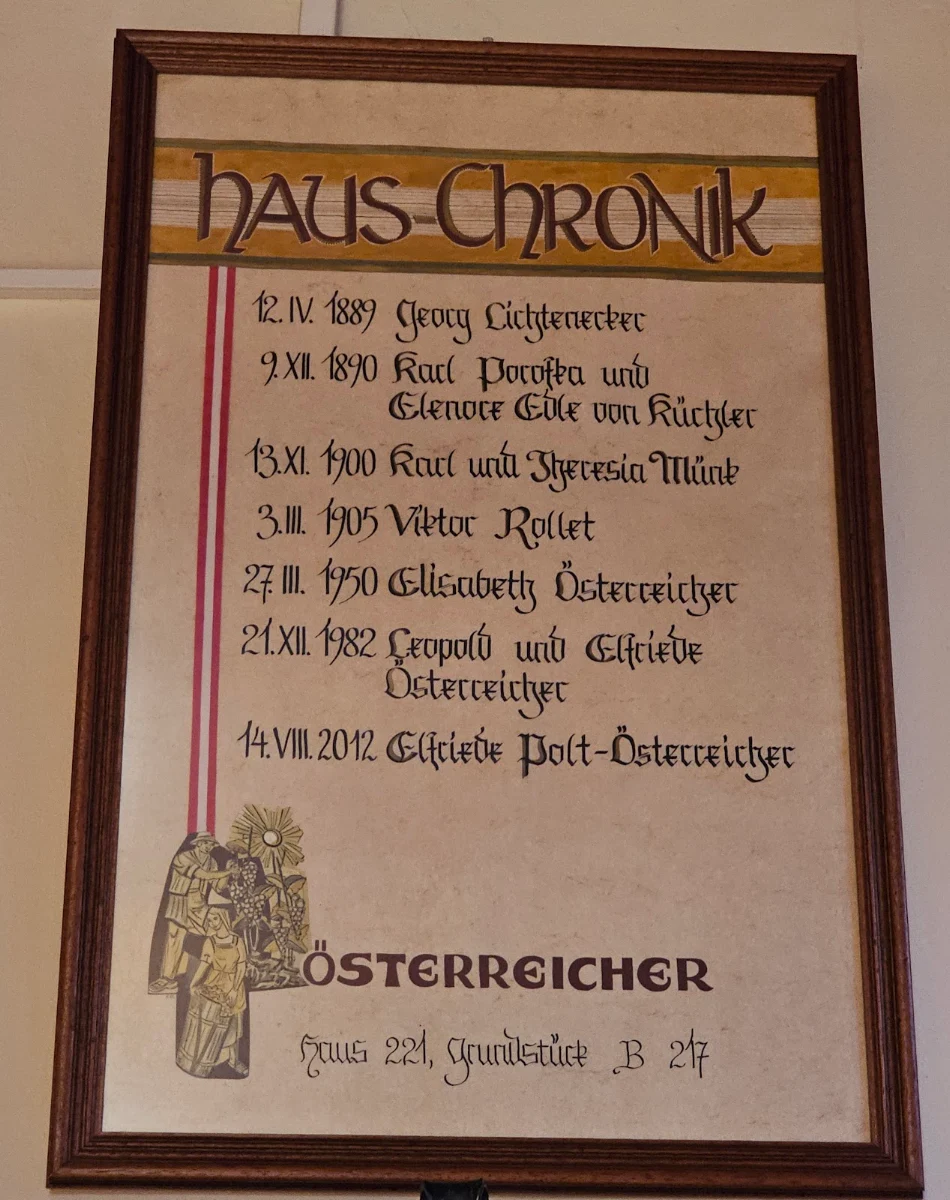 Haus-Chronik
12. IV. 1889 Georg Lichtenecker
9. XII. 1890 Karl Porofka und
Elenore Edle von Küchler
13. XI. 1900 Karl und Theresia Münk
3. III. 1905 Viktor Rollet
27. III. 1950 Elisabeth Österreicher
21. XII. 1982 Leopold und Elfriede
Österreicher
14. VIII. 2012 Elfriede Polt-Österreicher
ÖSTERREICHER
Haus 221, Grundstück B 217